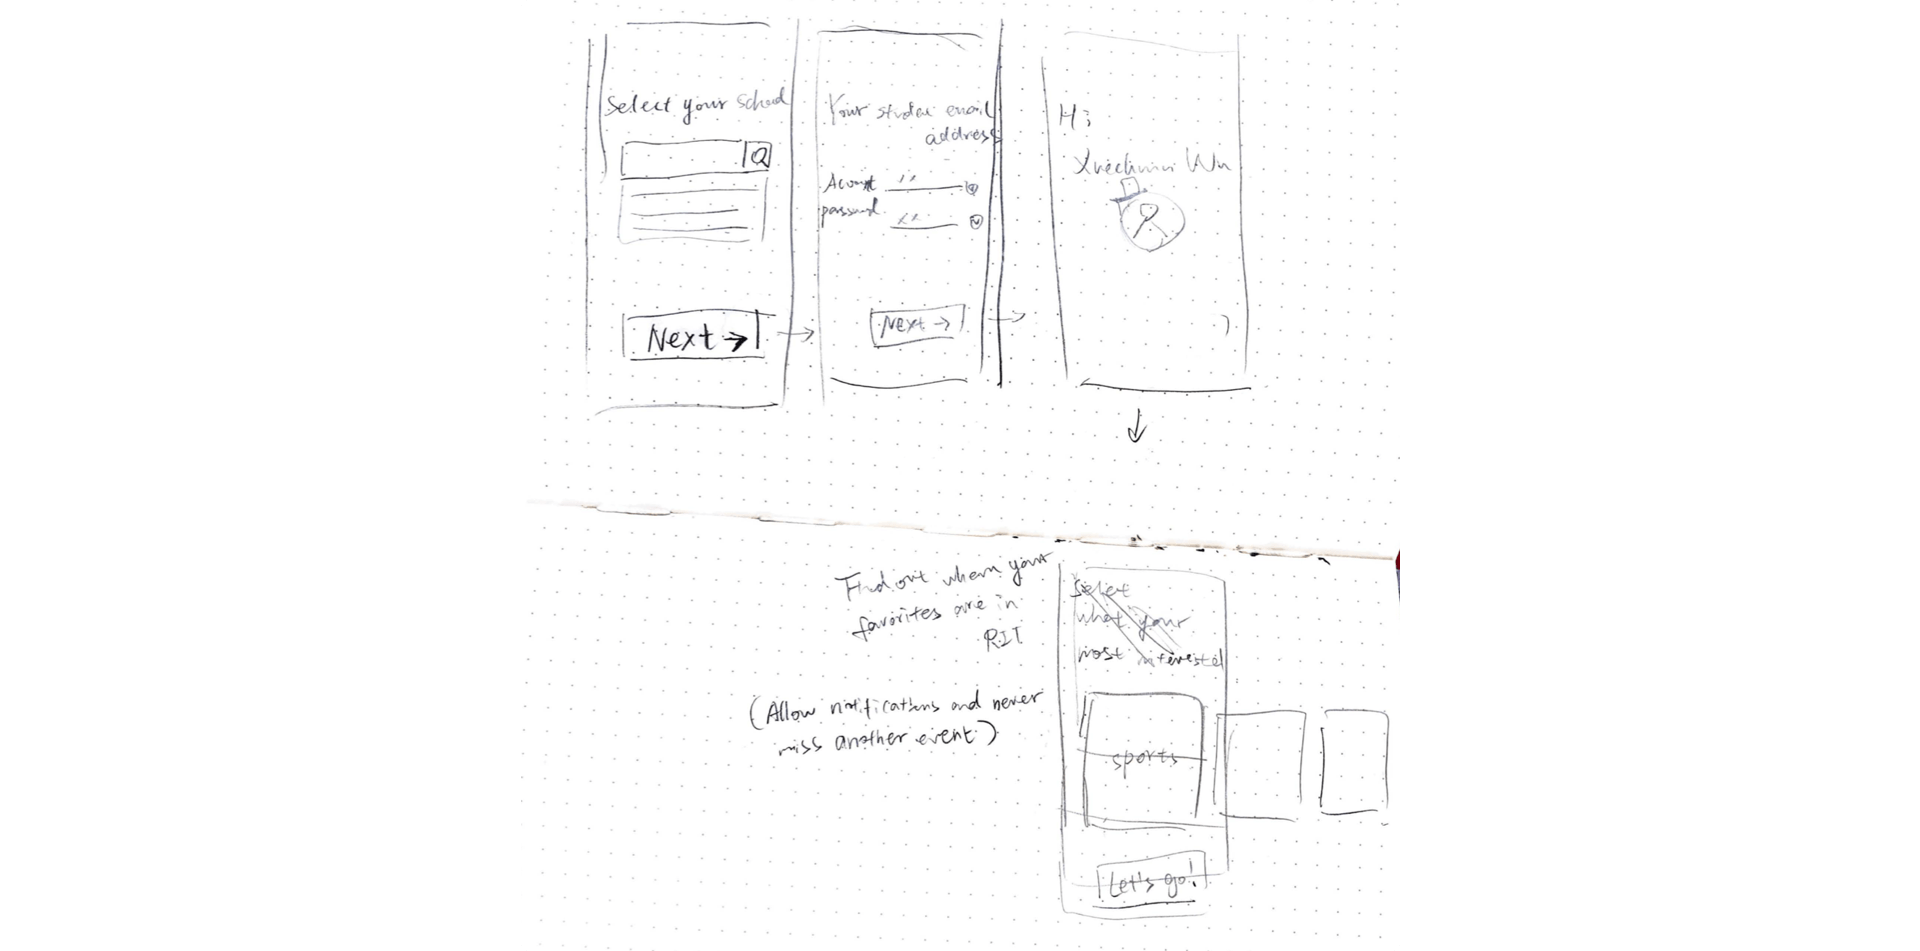 Select your School
Next →
Your studen email
address
Acount
passwd
Next →
Hi
Wu
Find out when your
favorites are in
RIT
(Allow notifications and never
miss another event)
Select
what your
most interested
sports
Let's go!